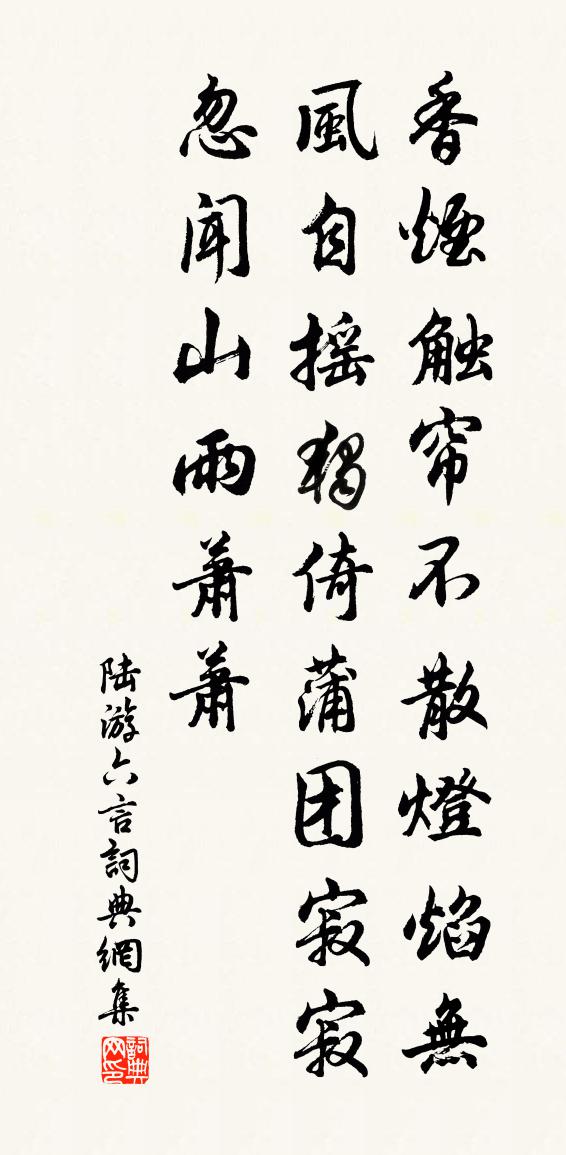 香煙触帘不散燈焰無
風自摇獨倚蒲团寂寂
忽闻山雨蕭蕭
陆游六言詞典網集
詞典网印